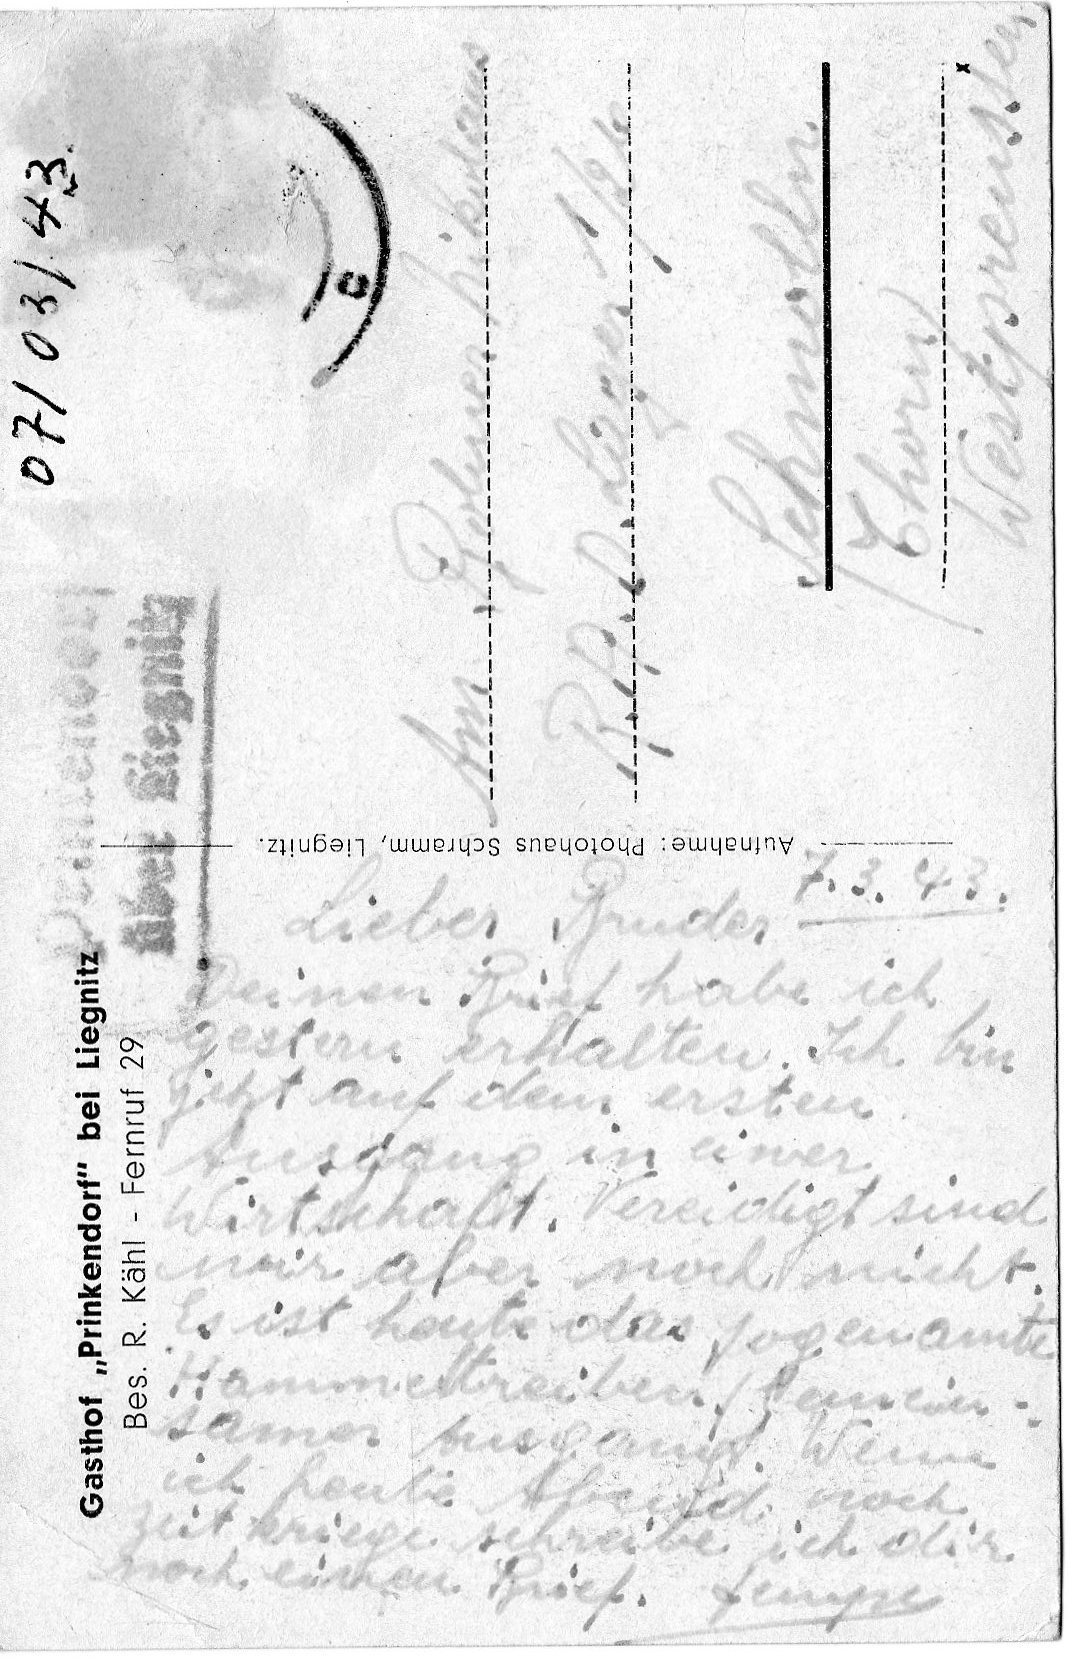 07/03/43
über Liegnitz
An
R.A.D. Lager 1/
Schmolln
(Thorn)
Westpreussen
Aufnahme: Photohaus Schramm, Liegnitz.
Gasthof „Prinkendorf" bei Liegnitz
Bes. R. Kähl - Fernruf 29
7.3.43.
Lieber Bruder
Deinen Brief habe ich
gestern erhalten. Ich bin
jetzt auf dem ersten
Ausgang in einer
Wirtschaft. Vereidigt sind
wir aber noch nicht.
Es ist heute das sogenannte
Hammeltreiben (Gemein-
samer Ausgang). Wenn
ich heute Abend noch
Zeit kriege schreibe ich dir
noch einen Brief.